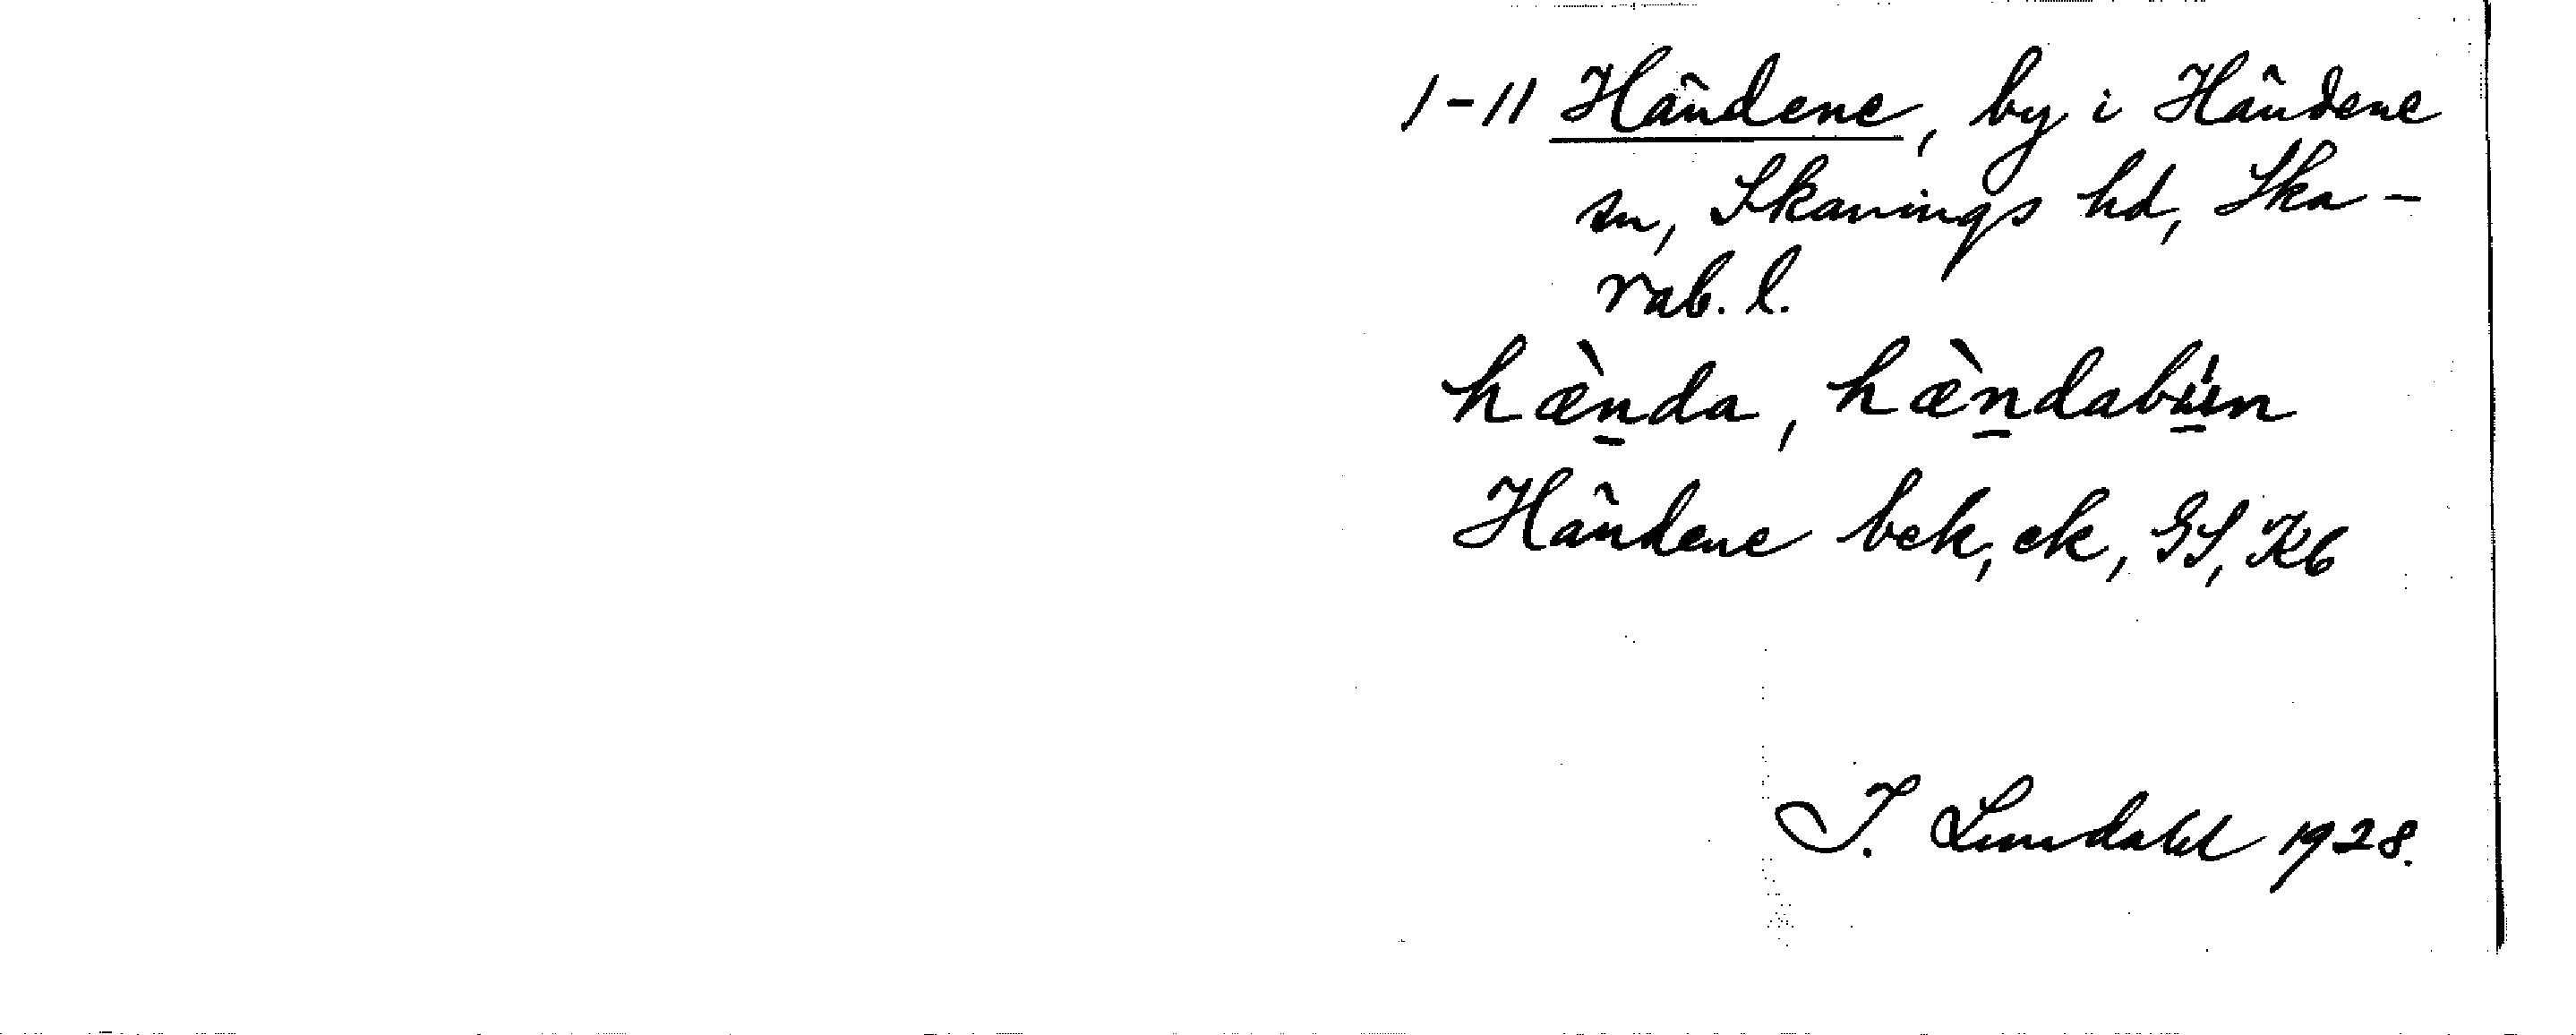 1-11 Händene, by i Händene
sn, Skanings hd, Ska-
rab. l.
hæ̀n̠da, hæ̀n̠dabú̠n
Händene bek, ek, GS, Kb
I. Lundahl 1928.